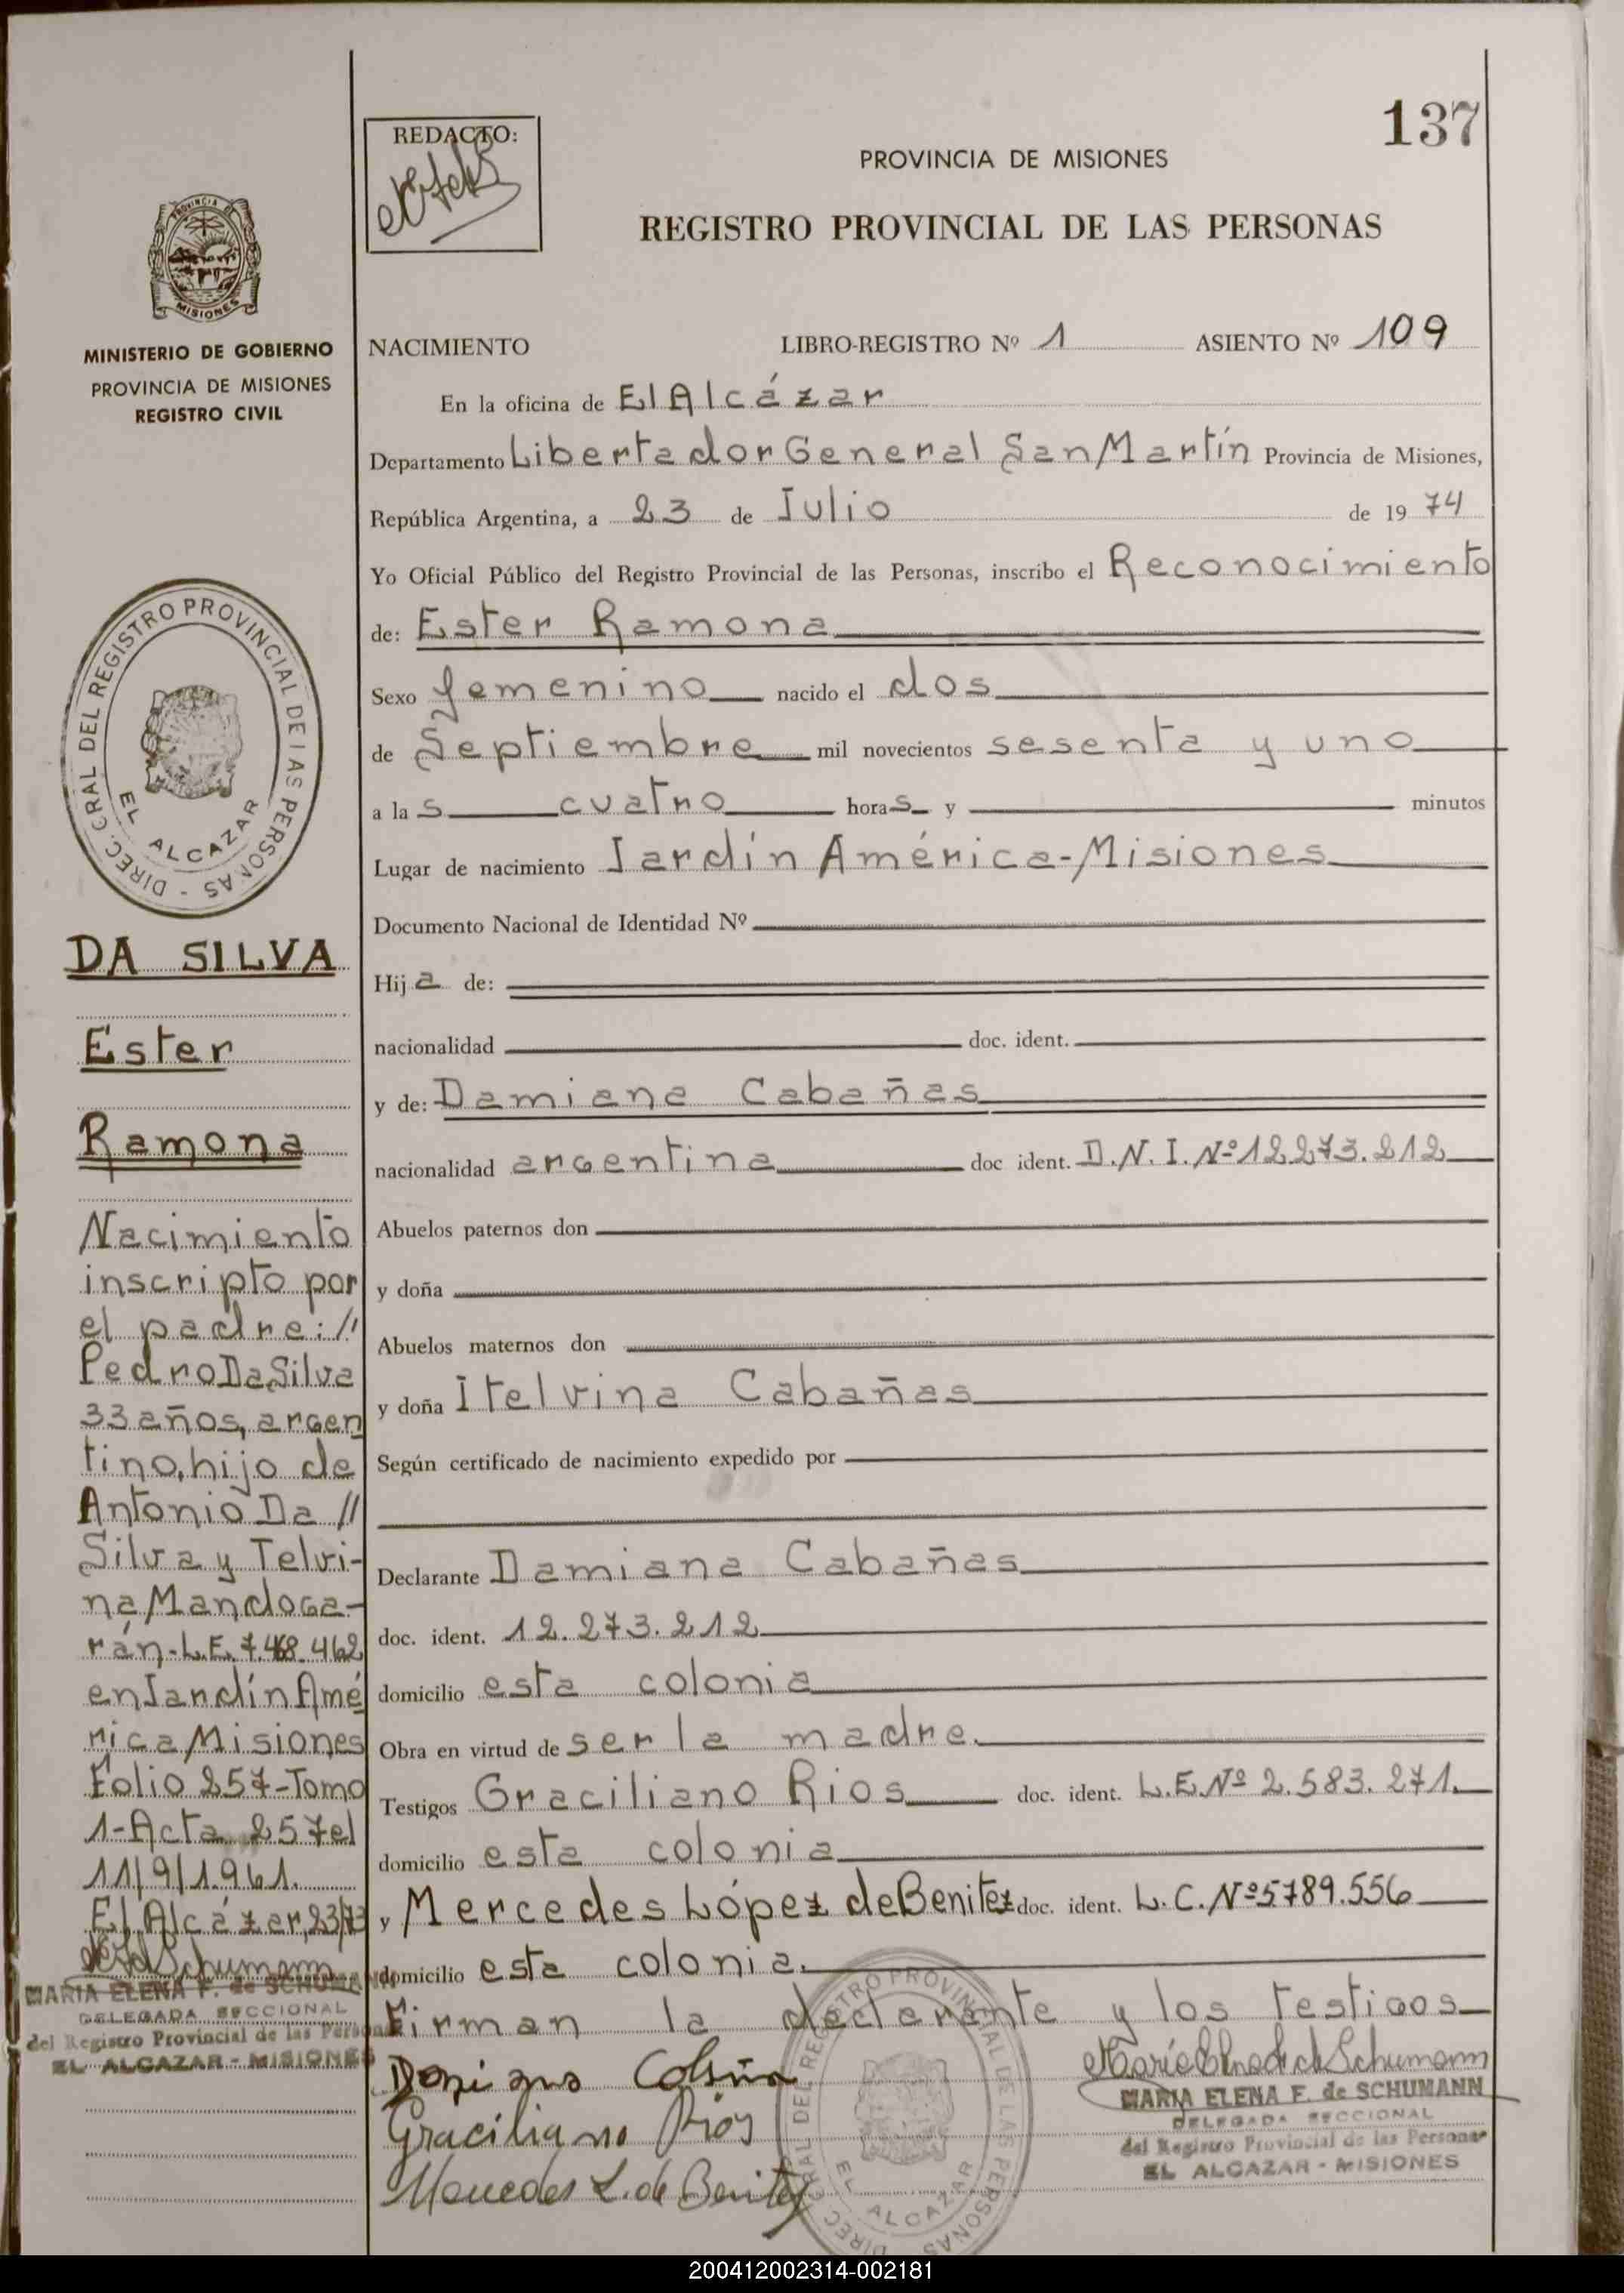 137
REDACTO:
PROVINCIA DE MISIONES
REGISTRO PROVINCIAL DE LAS PERSONAS
PROVINCIA
MISIONES
MINISTERIO DE GOBIERNO
PROVINCIA DE MISIONES
REGISTRO CIVIL
DIREC. GRAL DEL REGISTRO PROVINCIAL DE LAS PERSONAS -
EL ALCAZAR
DA SILVA
Ester
Ramona
Nacimiento
inscripto por
el padre: //
Pedro Da Silva
33 años, argen
tino, hijo de
Antonio Da //
Silva y Telvi-
na Mandoga-
rán-L.E. 7.468.462
en Jardín Amé
rica Misiones
Folio 257-Tomo
1-Acta 257 el
11/9/1.961.
El Alcázar, 23/7/
MARIA ELENA F. de SCHUMANN
DELEGADA SECCIONAL
del Registro Provincial de las Personas
EL ALCAZAR - MISIONES
NACIMIENTO LIBRO-REGISTRO Nº 1 ASIENTO Nº 109
En la oficina de El Alcázar
Departamento Libertador General San Martín Provincia de Misiones,
República Argentina, a 23 de Julio de 19 74
Yo Oficial Público del Registro Provincial de las Personas, inscribo el Reconocimiento
de: Ester Ramona
Sexo femenino nacido el dos
de Septiembre mil novecientos sesenta y uno
a la s cuatro hora s y minutos
Lugar de nacimiento Jardín América-Misiones
Documento Nacional de Identidad Nº
Hij a de:
nacionalidad doc. ident.
y de: Damiana Cabañas
nacionalidad argentina doc ident. D.N.I. Nº 12.273.212
Abuelos paternos don
y doña
Abuelos maternos don
y doña Itelvina Cabañas
Según certificado de nacimiento expedido por
Declarante Damiana Cabañas
doc. ident. 12.273.212
domicilio esta colonia
Obra en virtud de ser la madre.
Testigos Graciliano Rios doc. ident. L.E. Nº 2.583.271.
domicilio esta colonia
y Mercedes López de Benitez doc. ident. L.C. Nº 5789.556
domicilio esta colonia.
Firman la declarante y los testigos
Graciliano Ríos
Mercedes L. de Benitez
MARIA ELENA F. de SCHUMANN
DELEGADA SECCIONAL
del Registro Provincial de las Personas
EL ALCAZAR - MISIONES
EL ALCAZAR
200412002314-002181